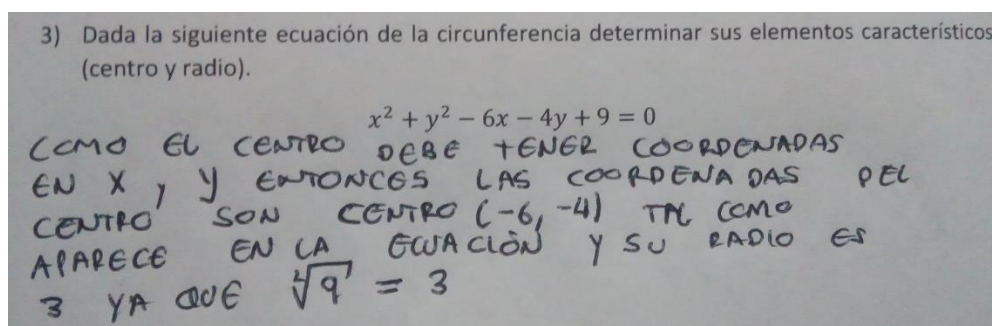 3) Dada la siguiente ecuación de la circunferencia determinar sus elementos característicos
(centro y radio).
x² + y² − 6x − 4y + 9 = 0
COMO EL CENTRO DEBE TENER COORDENADAS
EN X, Y ENTONCES LAS COORDENADAS DEL
CENTRO SON CENTRO (-6, -4) TAL COMO
APARECE EN LA ECUACIÓN Y SU RADIO ES
3 YA QUE ²√9 = 3